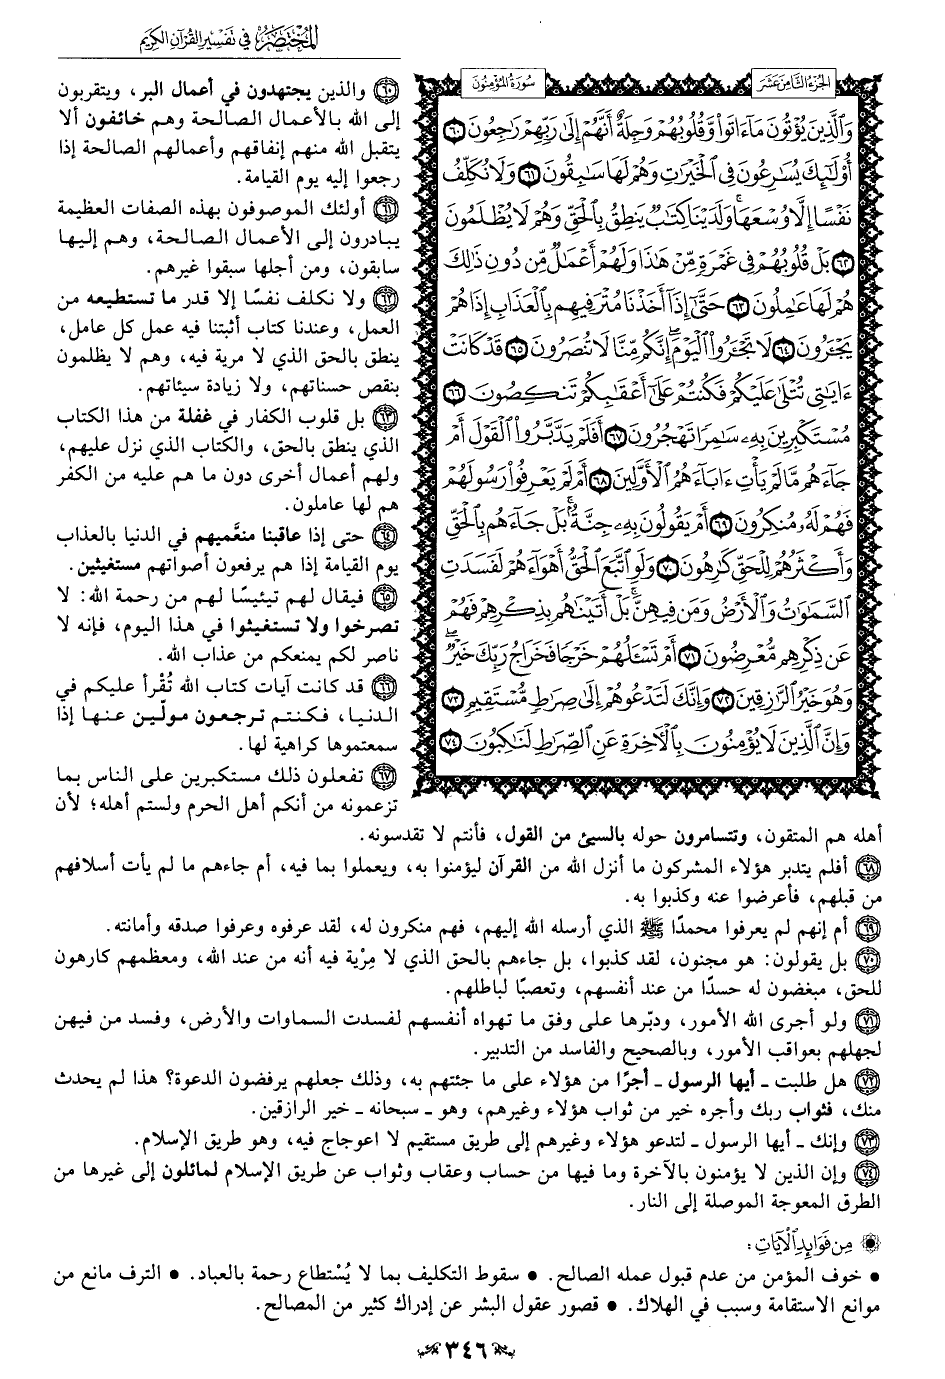 المختصر في تفسير القرآن الكريم
الجزء الثامن عشر
سورة المؤمنون
وَٱلَّذِينَ يُؤْتُونَ مَآ ءَاتَوا۟ وَّقُلُوبُهُمْ وَجِلَةٌ أَنَّهُمْ إِلَىٰ رَبِّهِمْ رَٰجِعُونَ ٦٠
أُو۟لَٰٓئِكَ يُسَٰرِعُونَ فِى ٱلْخَيْرَٰتِ وَهُمْ لَهَا سَٰبِقُونَ ٦١ وَلَا نُكَلِّفُ
نَفْسًا إِلَّا وُسْعَهَا ۖ وَلَدَيْنَا كِتَٰبٌ يَنطِقُ بِٱلْحَقِّ وَهُمْ لَا يُظْلَمُونَ
٦٢ بَلْ قُلُوبُهُمْ فِى غَمْرَةٍ مِّنْ هَٰذَا وَلَهُمْ أَعْمَٰلٌ مِّن دُونِ ذَٰلِكَ
هُمْ لَهَا عَٰمِلُونَ ٦٣ حَتَّىٰٓ إِذَآ أَخَذْنَا مُتْرَفِيهِم بِٱلْعَذَابِ إِذَا هُمْ
يَجْـَٔرُونَ ٦٤ لَا تَجْـَٔرُوا۟ ٱلْيَوْمَ ۖ إِنَّكُم مِّنَّا لَا تُنصَرُونَ ٦٥ قَدْ كَانَتْ
ءَايَٰتِى تُتْلَىٰ عَلَيْكُمْ فَكُنتُمْ عَلَىٰٓ أَعْقَٰبِكُمْ تَنكِصُونَ ٦٦
مُسْتَكْبِرِينَ بِهِۦ سَٰمِرًا تَهْجُرُونَ ٦٧ أَفَلَمْ يَدَّبَّرُوا۟ ٱلْقَوْلَ أَمْ
جَآءَهُم مَّا لَمْ يَأْتِ ءَابَآءَهُمُ ٱلْأَوَّلِينَ ٦٨ أَمْ لَمْ يَعْرِفُوا۟ رَسُولَهُمْ
فَهُمْ لَهُۥ مُنكِرُونَ ٦٩ أَمْ يَقُولُونَ بِهِۦ جِنَّةٌۢ ۚ بَلْ جَآءَهُم بِٱلْحَقِّ
وَأَكْثَرُهُمْ لِلْحَقِّ كَٰرِهُونَ ٧٠ وَلَوِ ٱتَّبَعَ ٱلْحَقُّ أَهْوَآءَهُمْ لَفَسَدَتِ
ٱلسَّمَٰوَٰتُ وَٱلْأَرْضُ وَمَن فِيهِنَّ ۚ بَلْ أَتَيْنَٰهُم بِذِكْرِهِمْ فَهُمْ
عَن ذِكْرِهِم مُّعْرِضُونَ ٧١ أَمْ تَسْـَٔلُهُمْ خَرْجًا فَخَرَاجُ رَبِّكَ خَيْرٌ ۖ
وَهُوَ خَيْرُ ٱلرَّٰزِقِينَ ٧٢ وَإِنَّكَ لَتَدْعُوهُمْ إِلَىٰ صِرَٰطٍ مُّسْتَقِيمٍ ٧٣
وَإِنَّ ٱلَّذِينَ لَا يُؤْمِنُونَ بِٱلْأَخِرَةِ عَنِ ٱلصِّرَٰطِ لَنَٰكِبُونَ ٧٤
٦٠ والذين يجتهدون في أعمال البر، ويتقربون
إلى الله بالأعمال الصالحة وهم خائفون ألا
يتقبل الله منهم إنفاقهم وأعمالهم الصالحة إذا
رجعوا إليه يوم القيامة.
٦١ أولئك الموصوفون بهذه الصفات العظيمة
يبادرون إلى الأعمال الصالحة، وهم إليها
سابقون، ومن أجلها سبقوا غيرهم.
٦٢ ولا نكلف نفسًا إلا قدر ما تستطيعه من
العمل، وعندنا كتاب أثبتنا فيه عمل كل عامل،
ينطق بالحق الذي لا مرية فيه، وهم لا يظلمون
بنقص حسناتهم، ولا زيادة سيئاتهم.
٦٣ بل قلوب الكفار في غفلة من هذا الكتاب
الذي ينطق بالحق، والكتاب الذي نزل عليهم،
ولهم أعمال أخرى دون ما هم عليه من الكفر
هم لها عاملون.
٦٤ حتى إذا عاقبنا منعَّميهم في الدنيا بالعذاب
يوم القيامة إذا هم يرفعون أصواتهم مستغيثين.
٦٥ فيقال لهم تيئيسًا لهم من رحمة الله: لا
تصرخوا ولا تستغيثوا في هذا اليوم، فإنه لا
ناصر لكم يمنعكم من عذاب الله.
٦٦ قد كانت آيات كتاب الله تُقْرأ عليكم في
الدنيا، فكنتم ترجعون مولّين عنها إذا
سمعتموها كراهية لها.
٦٧ تفعلون ذلك مستكبرين على الناس بما
تزعمونه من أنكم أهل الحرم ولستم أهله؛ لأن
أهله هم المتقون، وتتسامرون حوله بالسيئ من القول، فأنتم لا تقدسونه.
٦٨ أفلم يتدبر هؤلاء المشركون ما أنزل الله من القرآن ليؤمنوا به، ويعملوا بما فيه، أم جاءهم ما لم يأت أسلافهم
من قبلهم، فأعرضوا عنه وكذبوا به.
٦٩ أم إنهم لم يعرفوا محمدًا ﷺ الذي أرسله الله إليهم، فهم منكرون له، لقد عرفوه وعرفوا صدقه وأمانته.
٧٠ بل يقولون: هو مجنون، لقد كذبوا، بل جاءهم بالحق الذي لا مِرْية فيه أنه من عند الله، ومعظمهم كارهون
للحق، مبغضون له حسدًا من عند أنفسهم، وتعصبًا لباطلهم.
٧١ ولو أجرى الله الأمور، ودبّرها على وفق ما تهواه أنفسهم لفسدت السماوات والأرض، وفسد من فيهن
لجهلهم بعواقب الأمور، وبالصحيح والفاسد من التدبير.
٧٢ هل طلبت ـ أيها الرسول ـ أجرًا من هؤلاء على ما جئتهم به، وذلك جعلهم يرفضون الدعوة؟ هذا لم يحدث
منك، فثواب ربك وأجره خير من ثواب هؤلاء وغيرهم، وهو ـ سبحانه ـ خير الرازقين.
٧٣ وإنك ـ أيها الرسول ـ لتدعو هؤلاء وغيرهم إلى طريق مستقيم لا اعوجاج فيه، وهو طريق الإسلام.
٧٤ وإن الذين لا يؤمنون بالآخرة وما فيها من حساب وعقاب وثواب عن طريق الإسلام لمائلون إلى غيرها من
الطرق المعوجة الموصلة إلى النار.
من فوائد الآيات:
• خوف المؤمن من عدم قبول عمله الصالح. • سقوط التكليف بما لا يُسْتطاع رحمة بالعباد. • الترف مانع من
موانع الاستقامة وسبب في الهلاك. • قصور عقول البشر عن إدراك كثير من المصالح.
٣٤٦